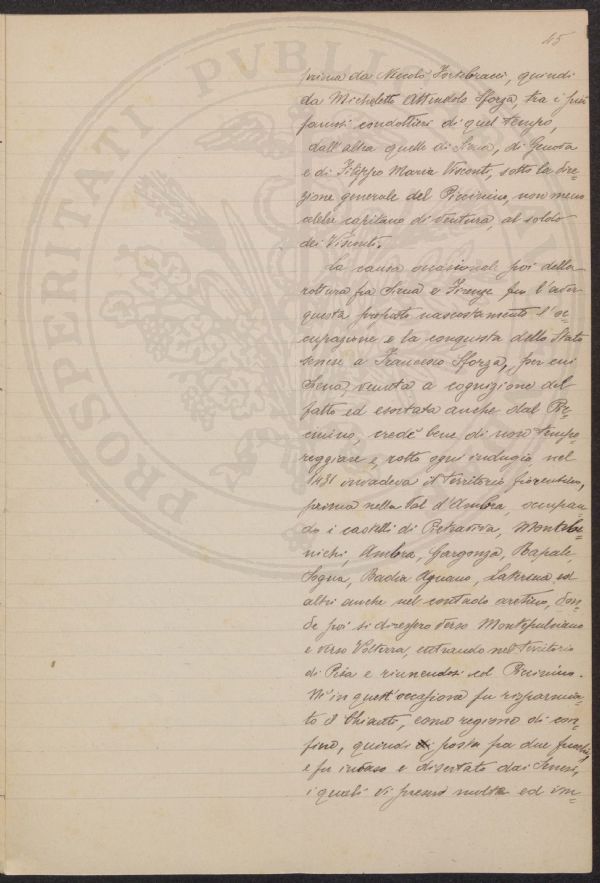 45
prima da Nicolò Fortebracci, quindi
da Micheletto Attendolo Sforza, tra i più
famosi condottieri di quel tempo,
dall'altra quelle di Siena, di Genova
e di Filippo Maria Visconti, sotto la dire-
zione generale del Piccinino, non meno
celebre capitano di ventura, al soldo
dei Visconti.
La causa occasionale poi della
rottura fra Siena e Firenze fu l'aver
questa proposto nascostamente l'oc-
cupazione e la conquista dello Stato
senese a Francesco Sforza, per cui
Siena, venuta a cognizione del
fatto ed esortata anche dal Pic-
cinino, credè bene di non tempo-
reggiare e, rotto ogni indugio nel
1431 invadeva il territorio fiorentino,
prima nella Val d'Ambra, occupan-
do i castelli di Pietraviva, Montebe-
nichi, Ambra, Gargonza, Rapale,
Sogna, Badia Agnano, Laterina ed
altri anche nel contado aretino, don-
de poi si diressero verso Montepulciano
e verso Volterra, entrando nel territorio
di Pisa e riunendosi col Piccinino.
Nè in quest'occasione fu risparmia-
to il Chianti, come regione di con-
fine, quindi posta fra due fuochi,
e fu invaso e disertato dai Senesi,
i quali vi presero molta ed im-
PROSPERITATI PVBLIC